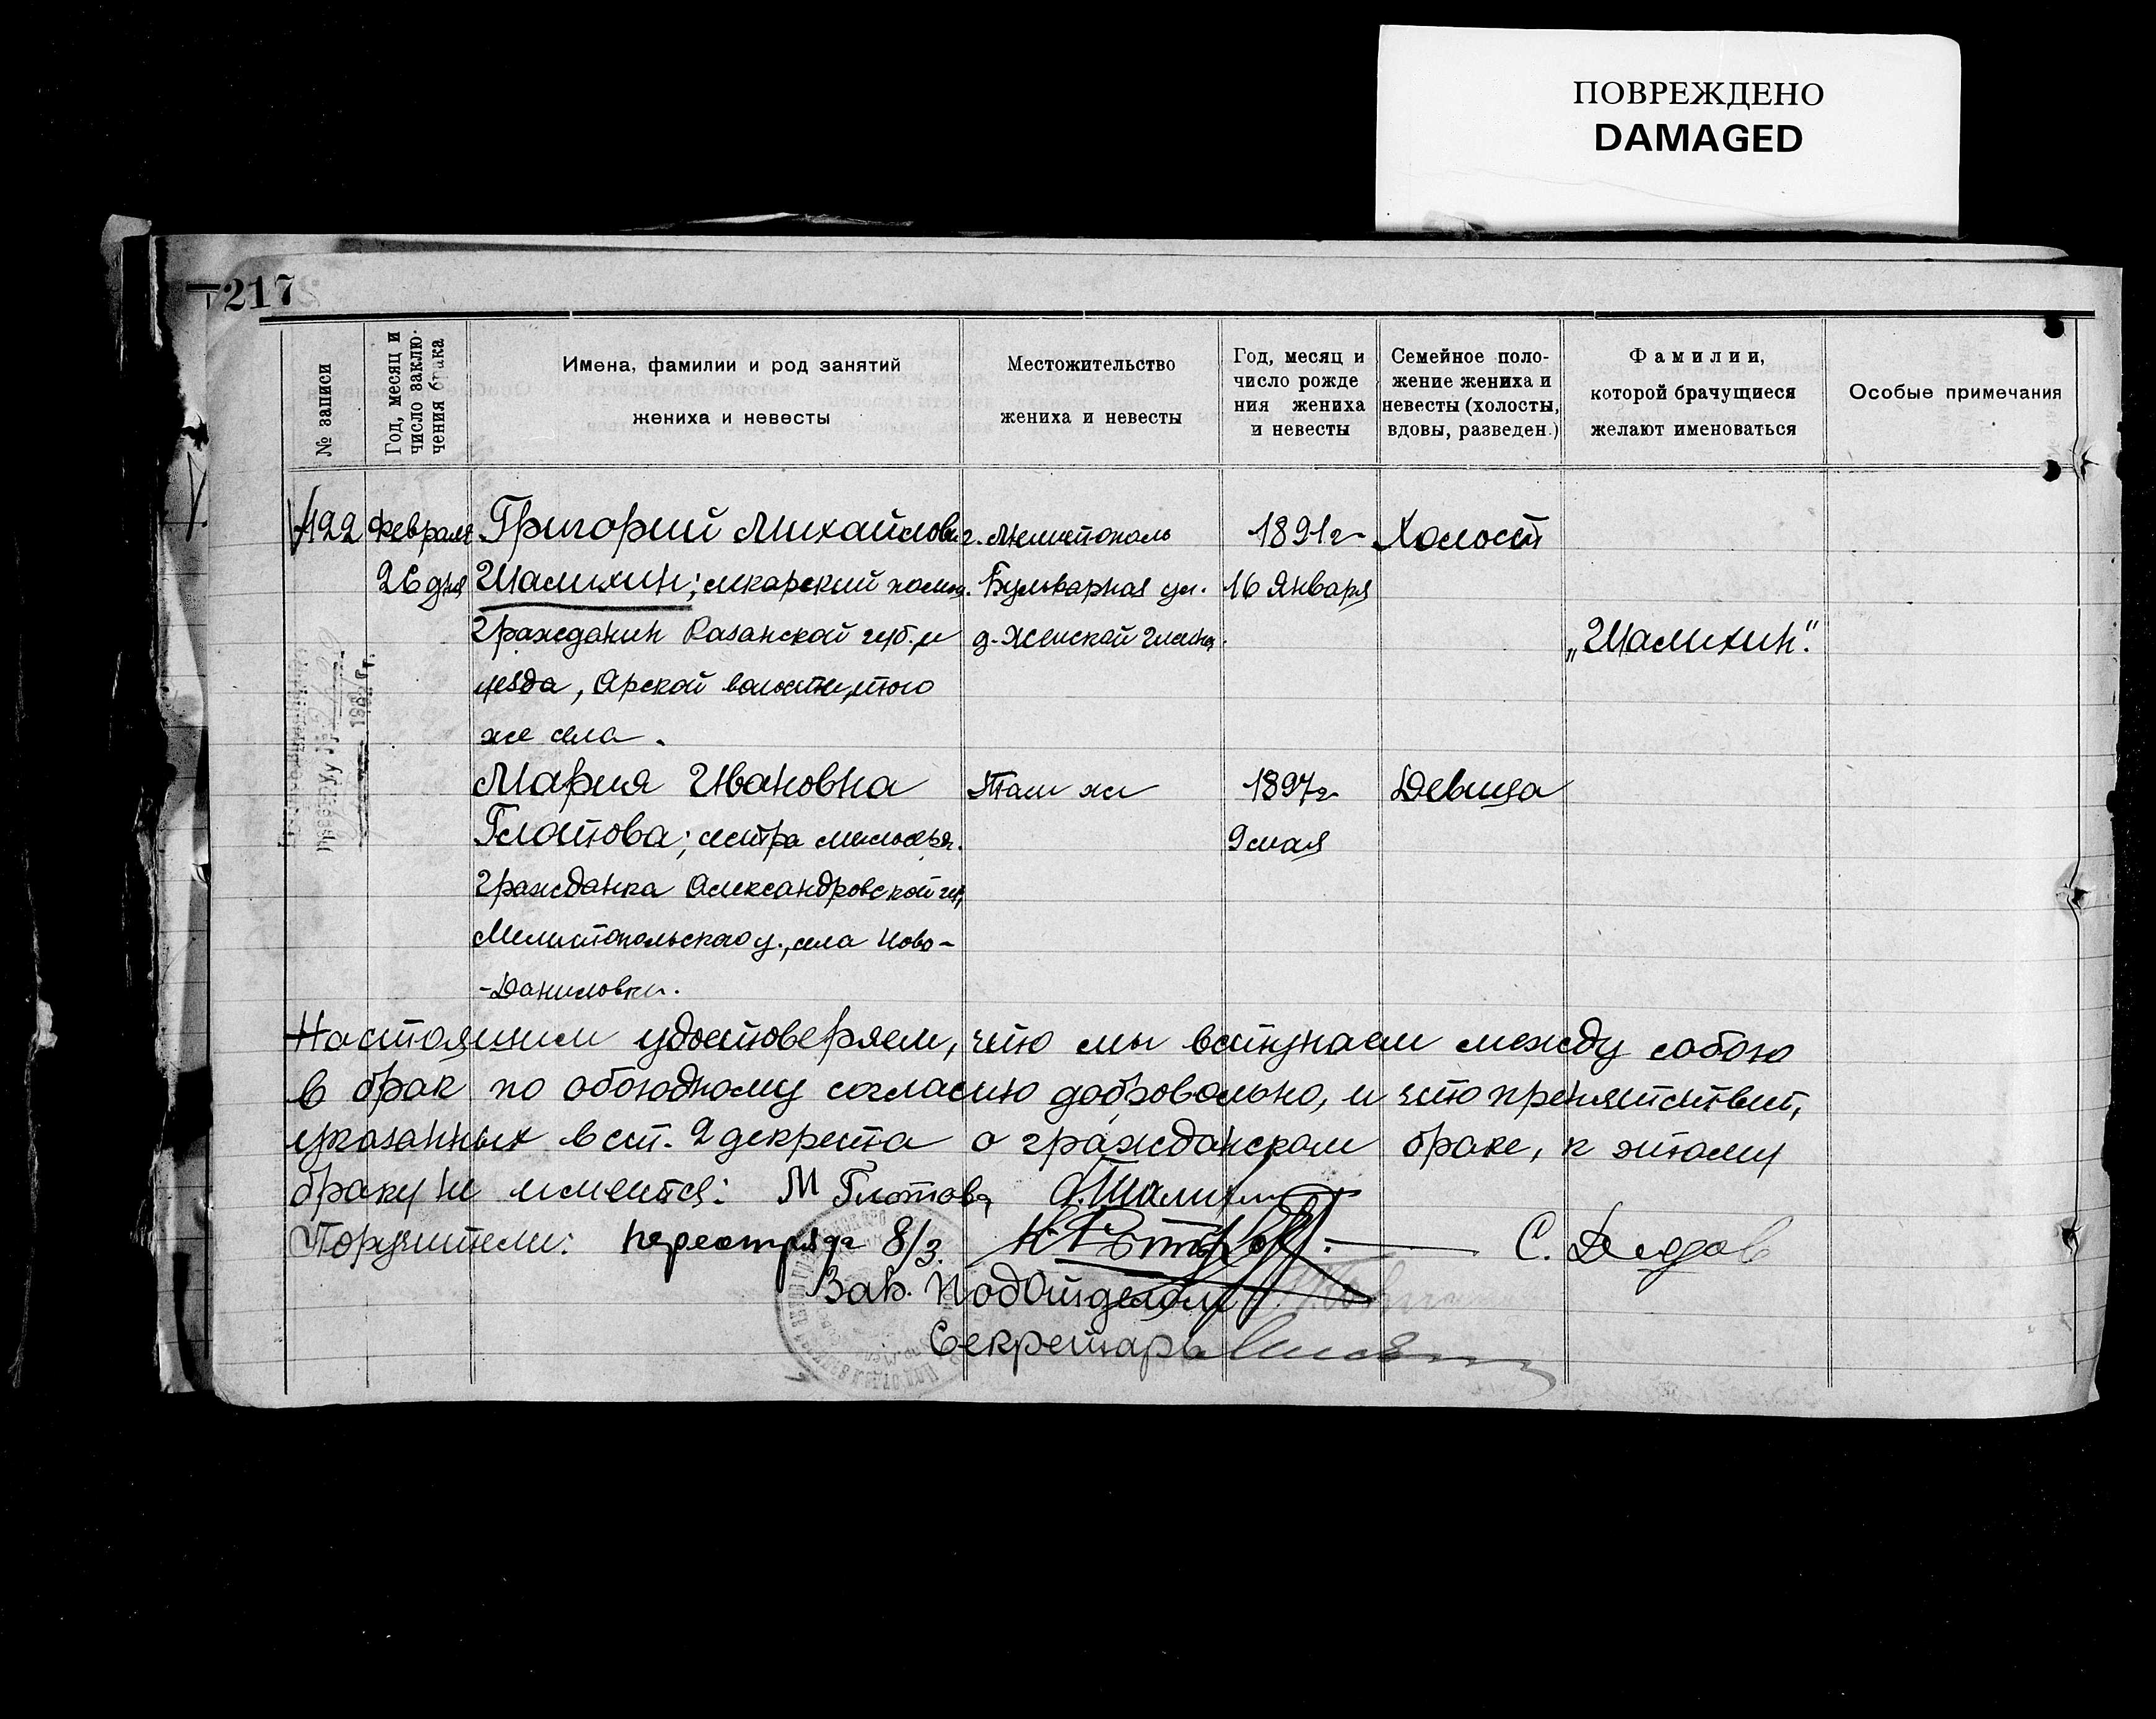 ПОВРЕЖДЕНО
DAMAGED
217
№ записи
Год, месяц и
число заклю-
чения брака
Имена, фамилии и род занятий
жениха и невесты
Местожительство
жениха и невесты
Год, месяц и
число рожде
ния жениха
и невесты
Семейное поло-
жение жениха и
невесты (холосты,
вдовы, разведен.)
Фамилии,
которой брачущиеся
желают именоваться
Особые примечания
122
февраля
26 дня
Григорий Михайлович
Шалихин; лекарский помощ.
гражданин Казанской губ. и
уезда, Арской волости, того
же села.
г. Мелитополь
Бульварная ул.
д. Женской гимна.
1891 г
16 января
Холост
„Шалихин".
Мария Ивановна
Глотова; сестра милосерд.
гражданка Александровской губ,
Мелитопольского у., села Ново-
-Даниловки.
Там же
1897 г
9 мая
Девица
Настоящим удостоверяем, что мы вступаем между собою
в брак по обоюдному согласию добровольно, и что препятствий,
указанных в ст. 2 декрета о гражданском браке, к этому
браку не имеется: М Глотова Г. Шалихин
Поручители: 8/3. С. Дедов
Зав. Подотделом
Секретарь